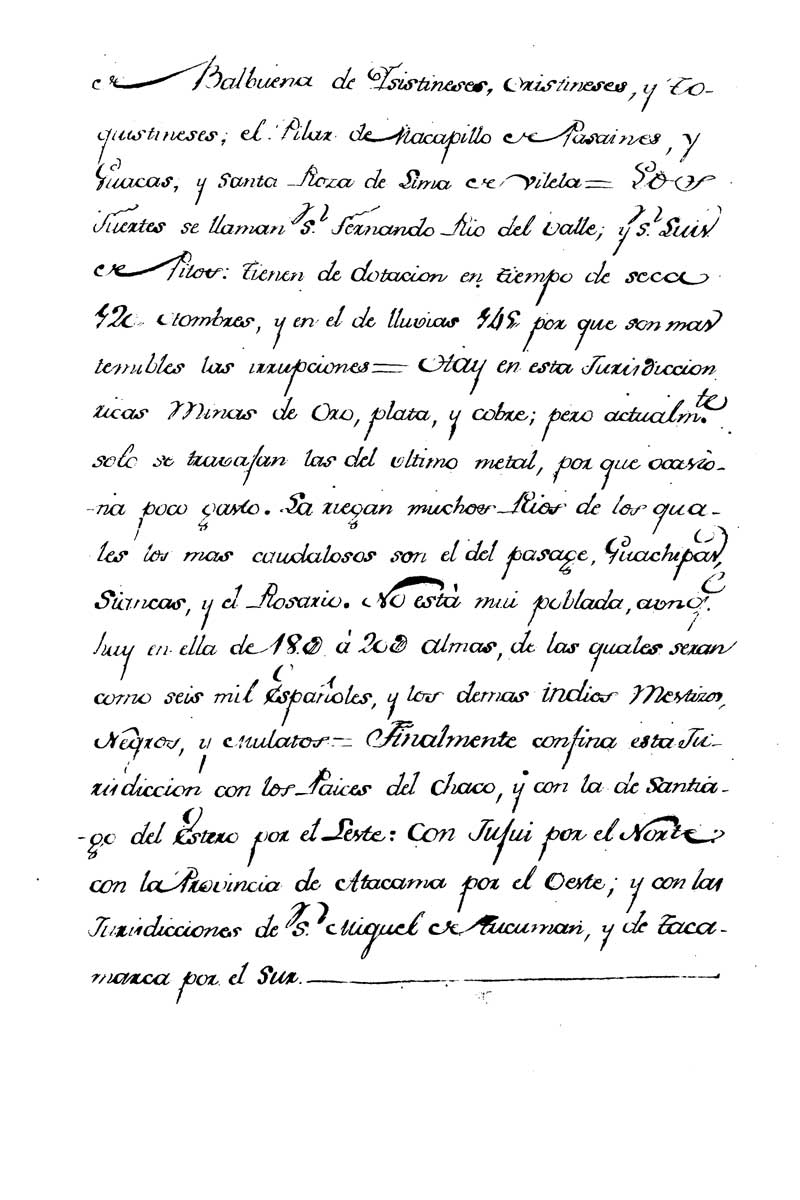 de Balbuena de Ysistineses, Oristineses, y To-
quistineses; el Pilar de Macapillo de Pasaines, y
Guacas, y Santa Roza de Lima de Vilela= Los
Fuertes se llaman Sn. Fernando Rio del Valle; y Sn. Luis
de Pitos: tienen de dotacion en tiempo de seca
Hombres, y en el de lluvias por que son mas
temibles las irrupciones= Hay en esta Jurisdiccion
ricas Minas de Oro, plata, y cobre; pero actualmte.
solo se travajan las del ultimo metal, por que ocasio-
-na poco gasto. La riegan muchos Rios de los qua-
les los mas caudalosos son el del pasage, Guachipas,
Siancas, y el Rosario. No està mui poblada, aunqe.
hay en ella de 18 @ à 20 @ almas, de las quales seran
como seis mil Españoles, y los demas indios Mestizos,
Negros, y Mulatos= Finalmente confina esta Ju-
risdiccion con los Paices del Chaco, y con la de Santia-
-go del Estero por el Leste: Con Jujui por el Norte:
con la Provincia de Atacama por el Oeste; y con las
Jurisdicciones de Sn. Miguel de Tucuman, y de Caca-
marca por el Sur.